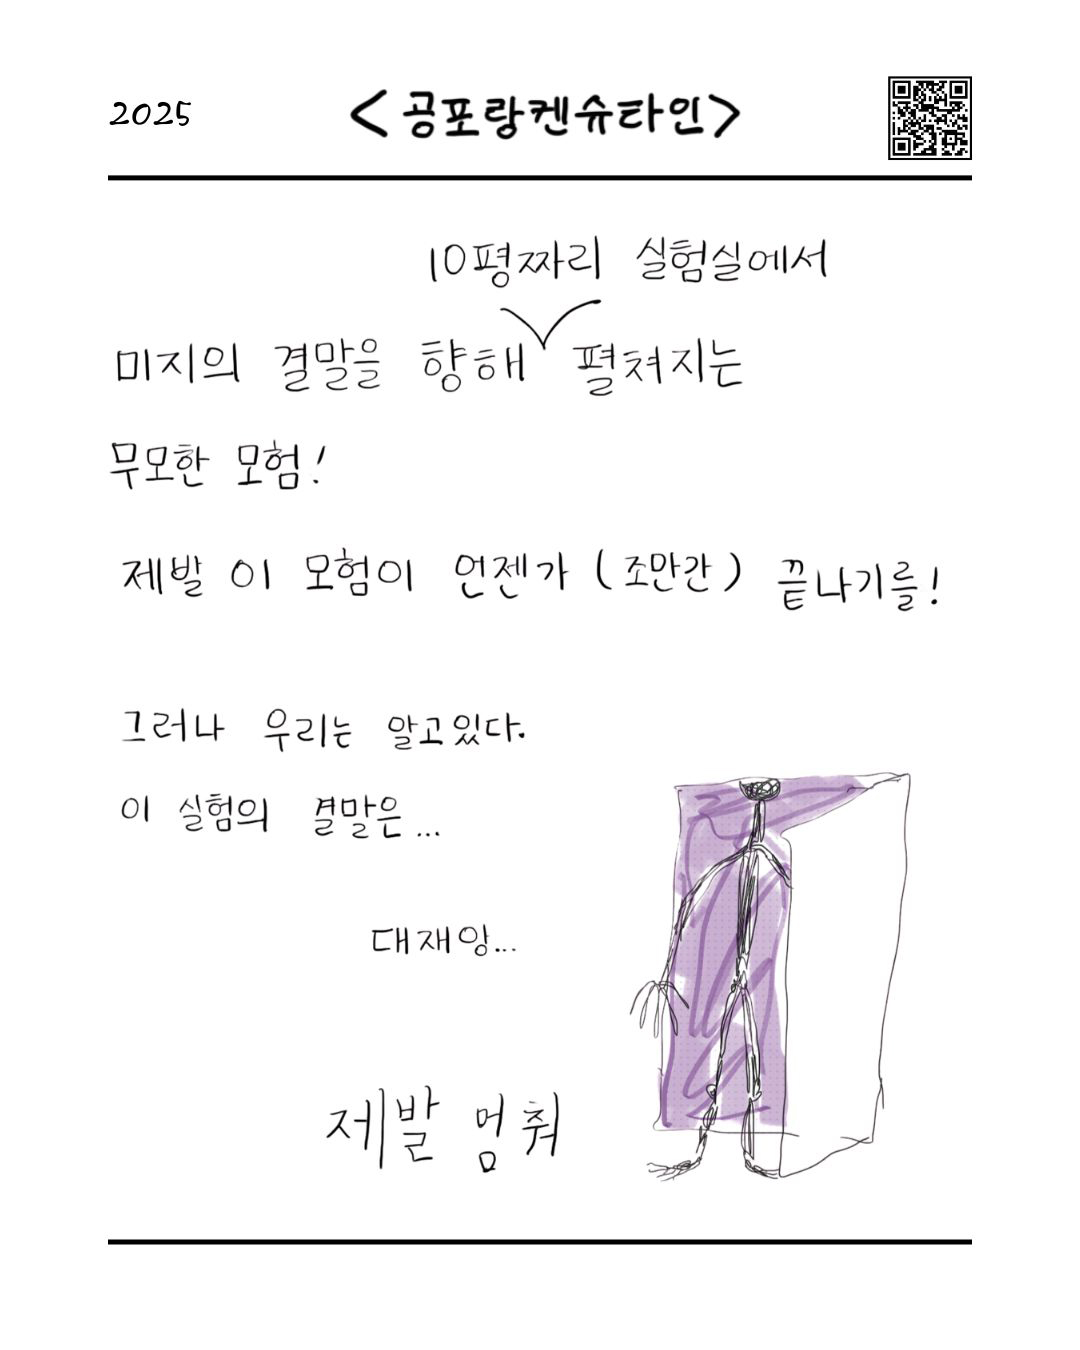 2025
<공포랑켄슈타인>
10평짜리 실험실에서
미지의 결말을 향해 펼쳐지는
무모한 모험!
제발 이 모험이 언젠가 (조만간) 끝나기를!
그러나 우리는 알고있다.
이 실험의 결말은...
대재앙...
제발 멈춰